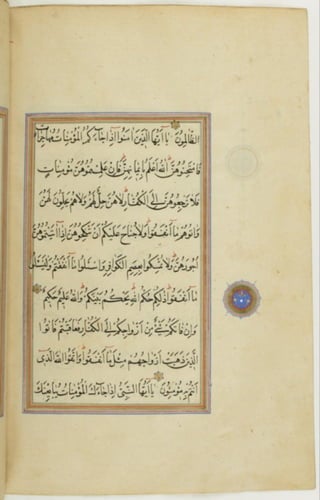 الظالمون يا ايها الذين امنوا اذا جاءكم المؤمنات مهاجرات
فامتحنوهن الله اعلم بايمانهن فان علمتموهن مؤمنات
فلا ترجعوهن الى الكفار لا هن حل لهم ولا هم يحلون لهن
واتوهم ما انفقوا ولا جناح عليكم ان تنكحوهن اذا اتيتموهن
اجورهن ولا تمسكوا بعصم الكوافر واسئلوا ما انفقتم وليسئلوا
ما انفقوا ذلكم حكم الله يحكم بينكم والله عليم حكيم
وان فاتكم شئ من ازواجكم الى الكفار فعاقبتم فاتوا
الذين ذهبت ازواجهم مثل ما انفقوا واتقوا الله الذى
انتم به مؤمنون يا ايها النبى اذا جاءك المؤمنات يبايعنك